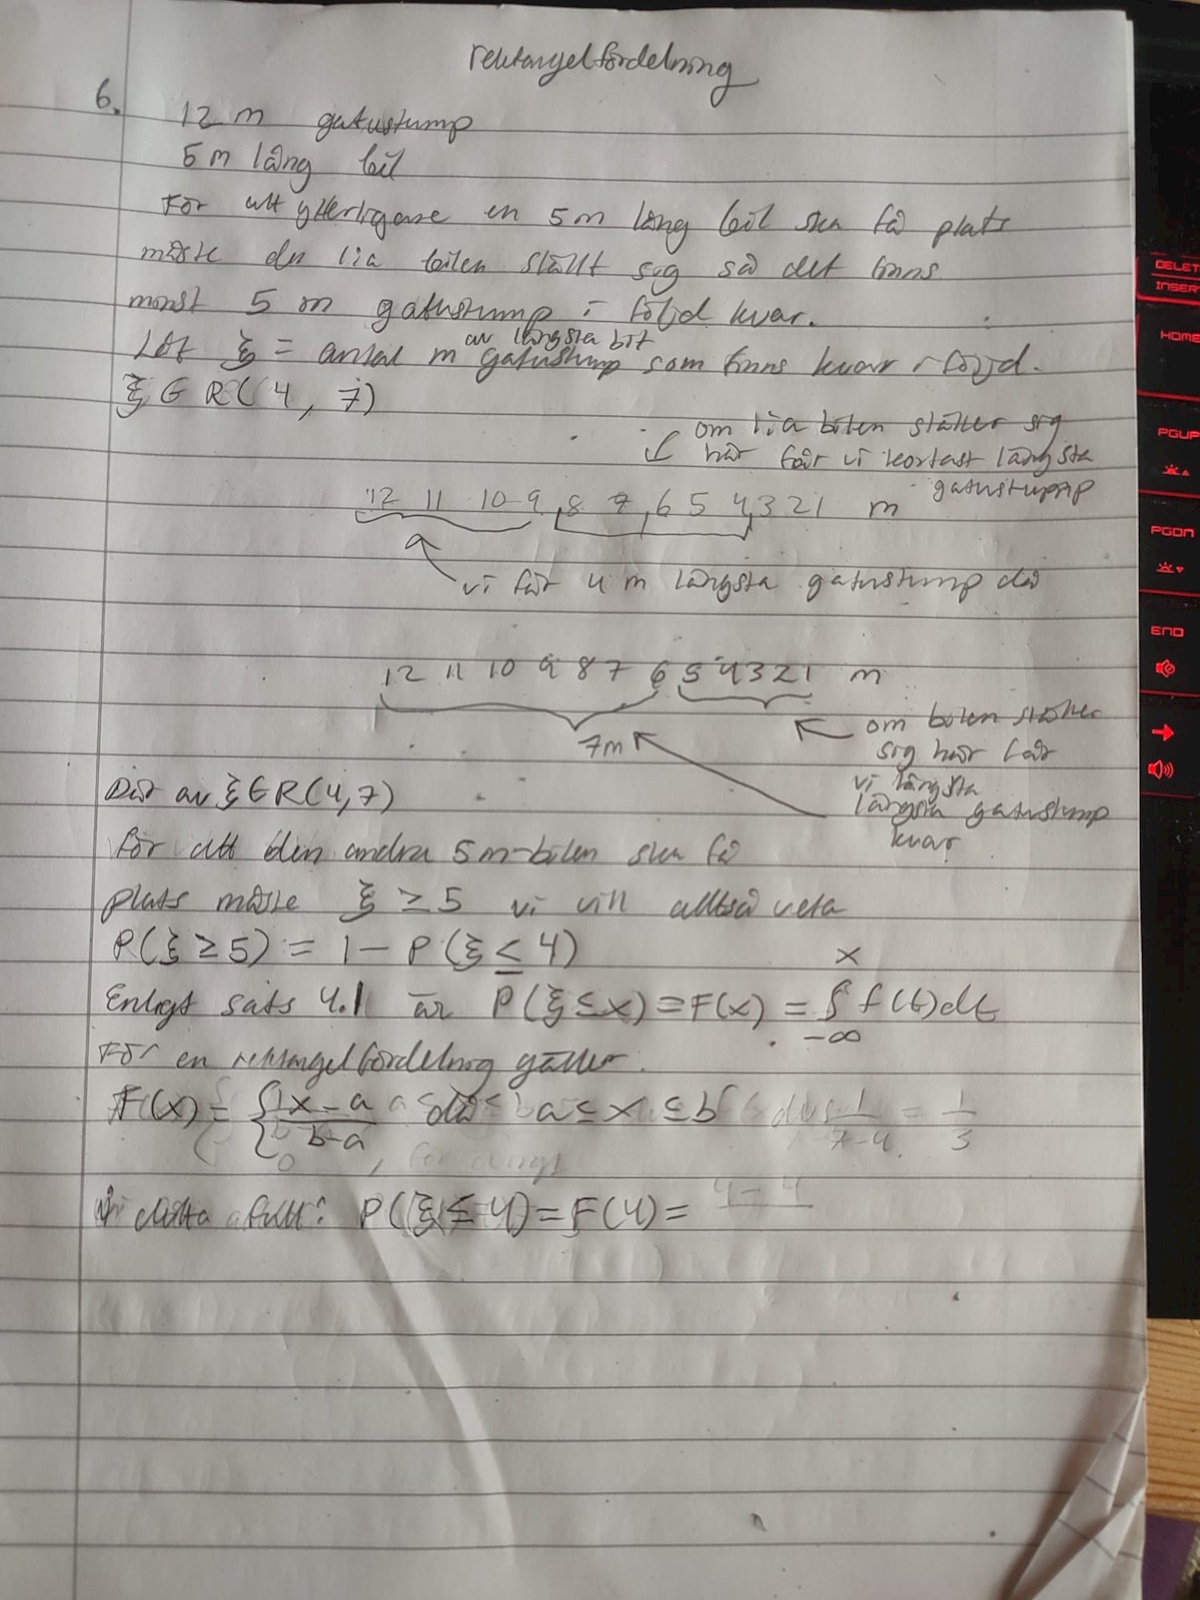 rektangelfördelning
6.
12 m gatustump
5 m lång bil
För att ytterligare en 5m lång bil ska få plats
måste den lia bilen ställt sig så det finns
minst 5 m gatustump i följd kvar.
av längsta bit
Låt ξ = antal m gatustump som finns kvar i följd.
ξ ∈ R(4, 7)
om lia bilen ställer sig
här får vi kortast längsta
gatustump
12 11 10 9 8 7 6 5 4 3 2 1 m
vi får 4 m längsta gatustump då
12 11 10 9 8 7 6 5 4 3 2 1 m
7m
om bilen ställer
sig här får
vi längsta
längsta gatustump
kvar
Där av ξ ∈ R(4,7)
För att den andra 5m-bilen ska få
plats måste ξ ≥ 5 vi vill alltså veta
P(ξ ≥ 5) = 1 - P(ξ ≤ 4)
Enligt sats 4.1 är P(ξ ≤ x) = F(x) = ∫ f(t)dt
x
-∞
För en rektangelfördelning gäller
F(x) = { x-a / b-a då a ≤ x ≤ b 1 / 7-4 = 1 / 3
0, för övrigt
I detta fall: P(ξ ≤ 4) = F(4) = 4-4